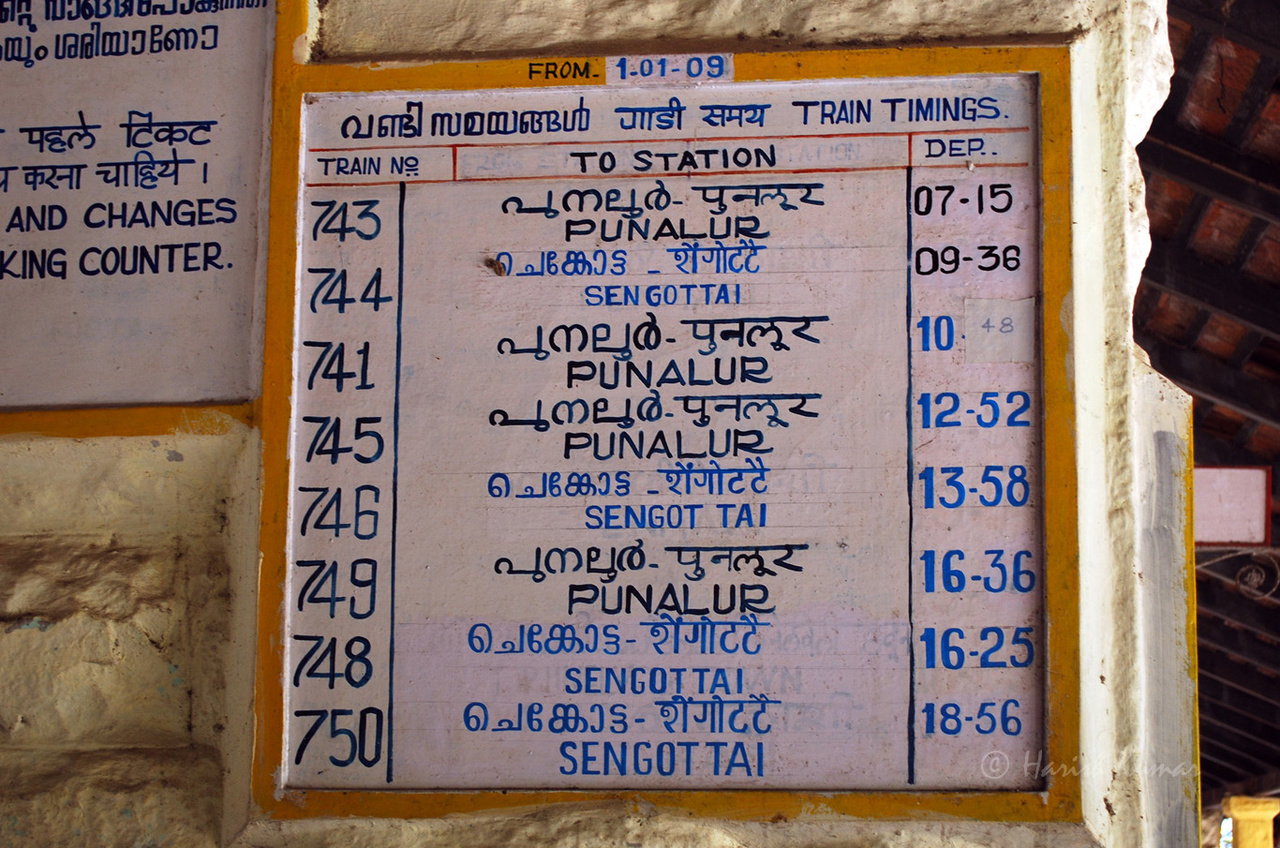 ശരിയാണോ
पहले टिकट
करना चाहिये ।
AND CHANGES
KING COUNTER.
FROM- 1-01-09
വണ്ടി സമയങ്ങൾ गाडी समय TRAIN TIMINGS.
TRAIN No TO STATION DEP..
743 പുനലുർ- पुनलूर 07-15
PUNALUR
744 ചെങ്കോട്ട - शेंगोटटै 09-36
SENGOTTAI
741 പുനലുർ- पुनलूर 10. 48
PUNALUR
745 പുനലുർ- पुनलूर 12-52
PUNALUR
746 ചെങ്കോട്ട - शेंगोटटै 13-58
SENGOT TAI
749 പുനലുർ- पुनलूर 16-36
PUNALUR
748 ചെങ്കോട്ട- शेंगोटटै 16-25
SENGOTTAI
750 ചെങ്കോട്ട- शेंगोटटै 18-56
SENGOTTAI
© Harish Kumar